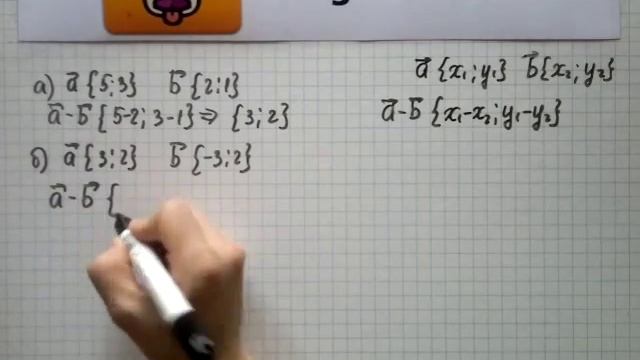 а) a⃗ {5;3} b⃗ {2;1}
a⃗-b⃗ {5-2; 3-1} ⇒ {3;2}
б) a⃗ {3;2} b⃗ {-3;2}
a⃗-b⃗ {
a⃗ {x₁;y₁} b⃗ {x₂;y₂}
a⃗-b⃗ {x₁-x₂; y₁-y₂}